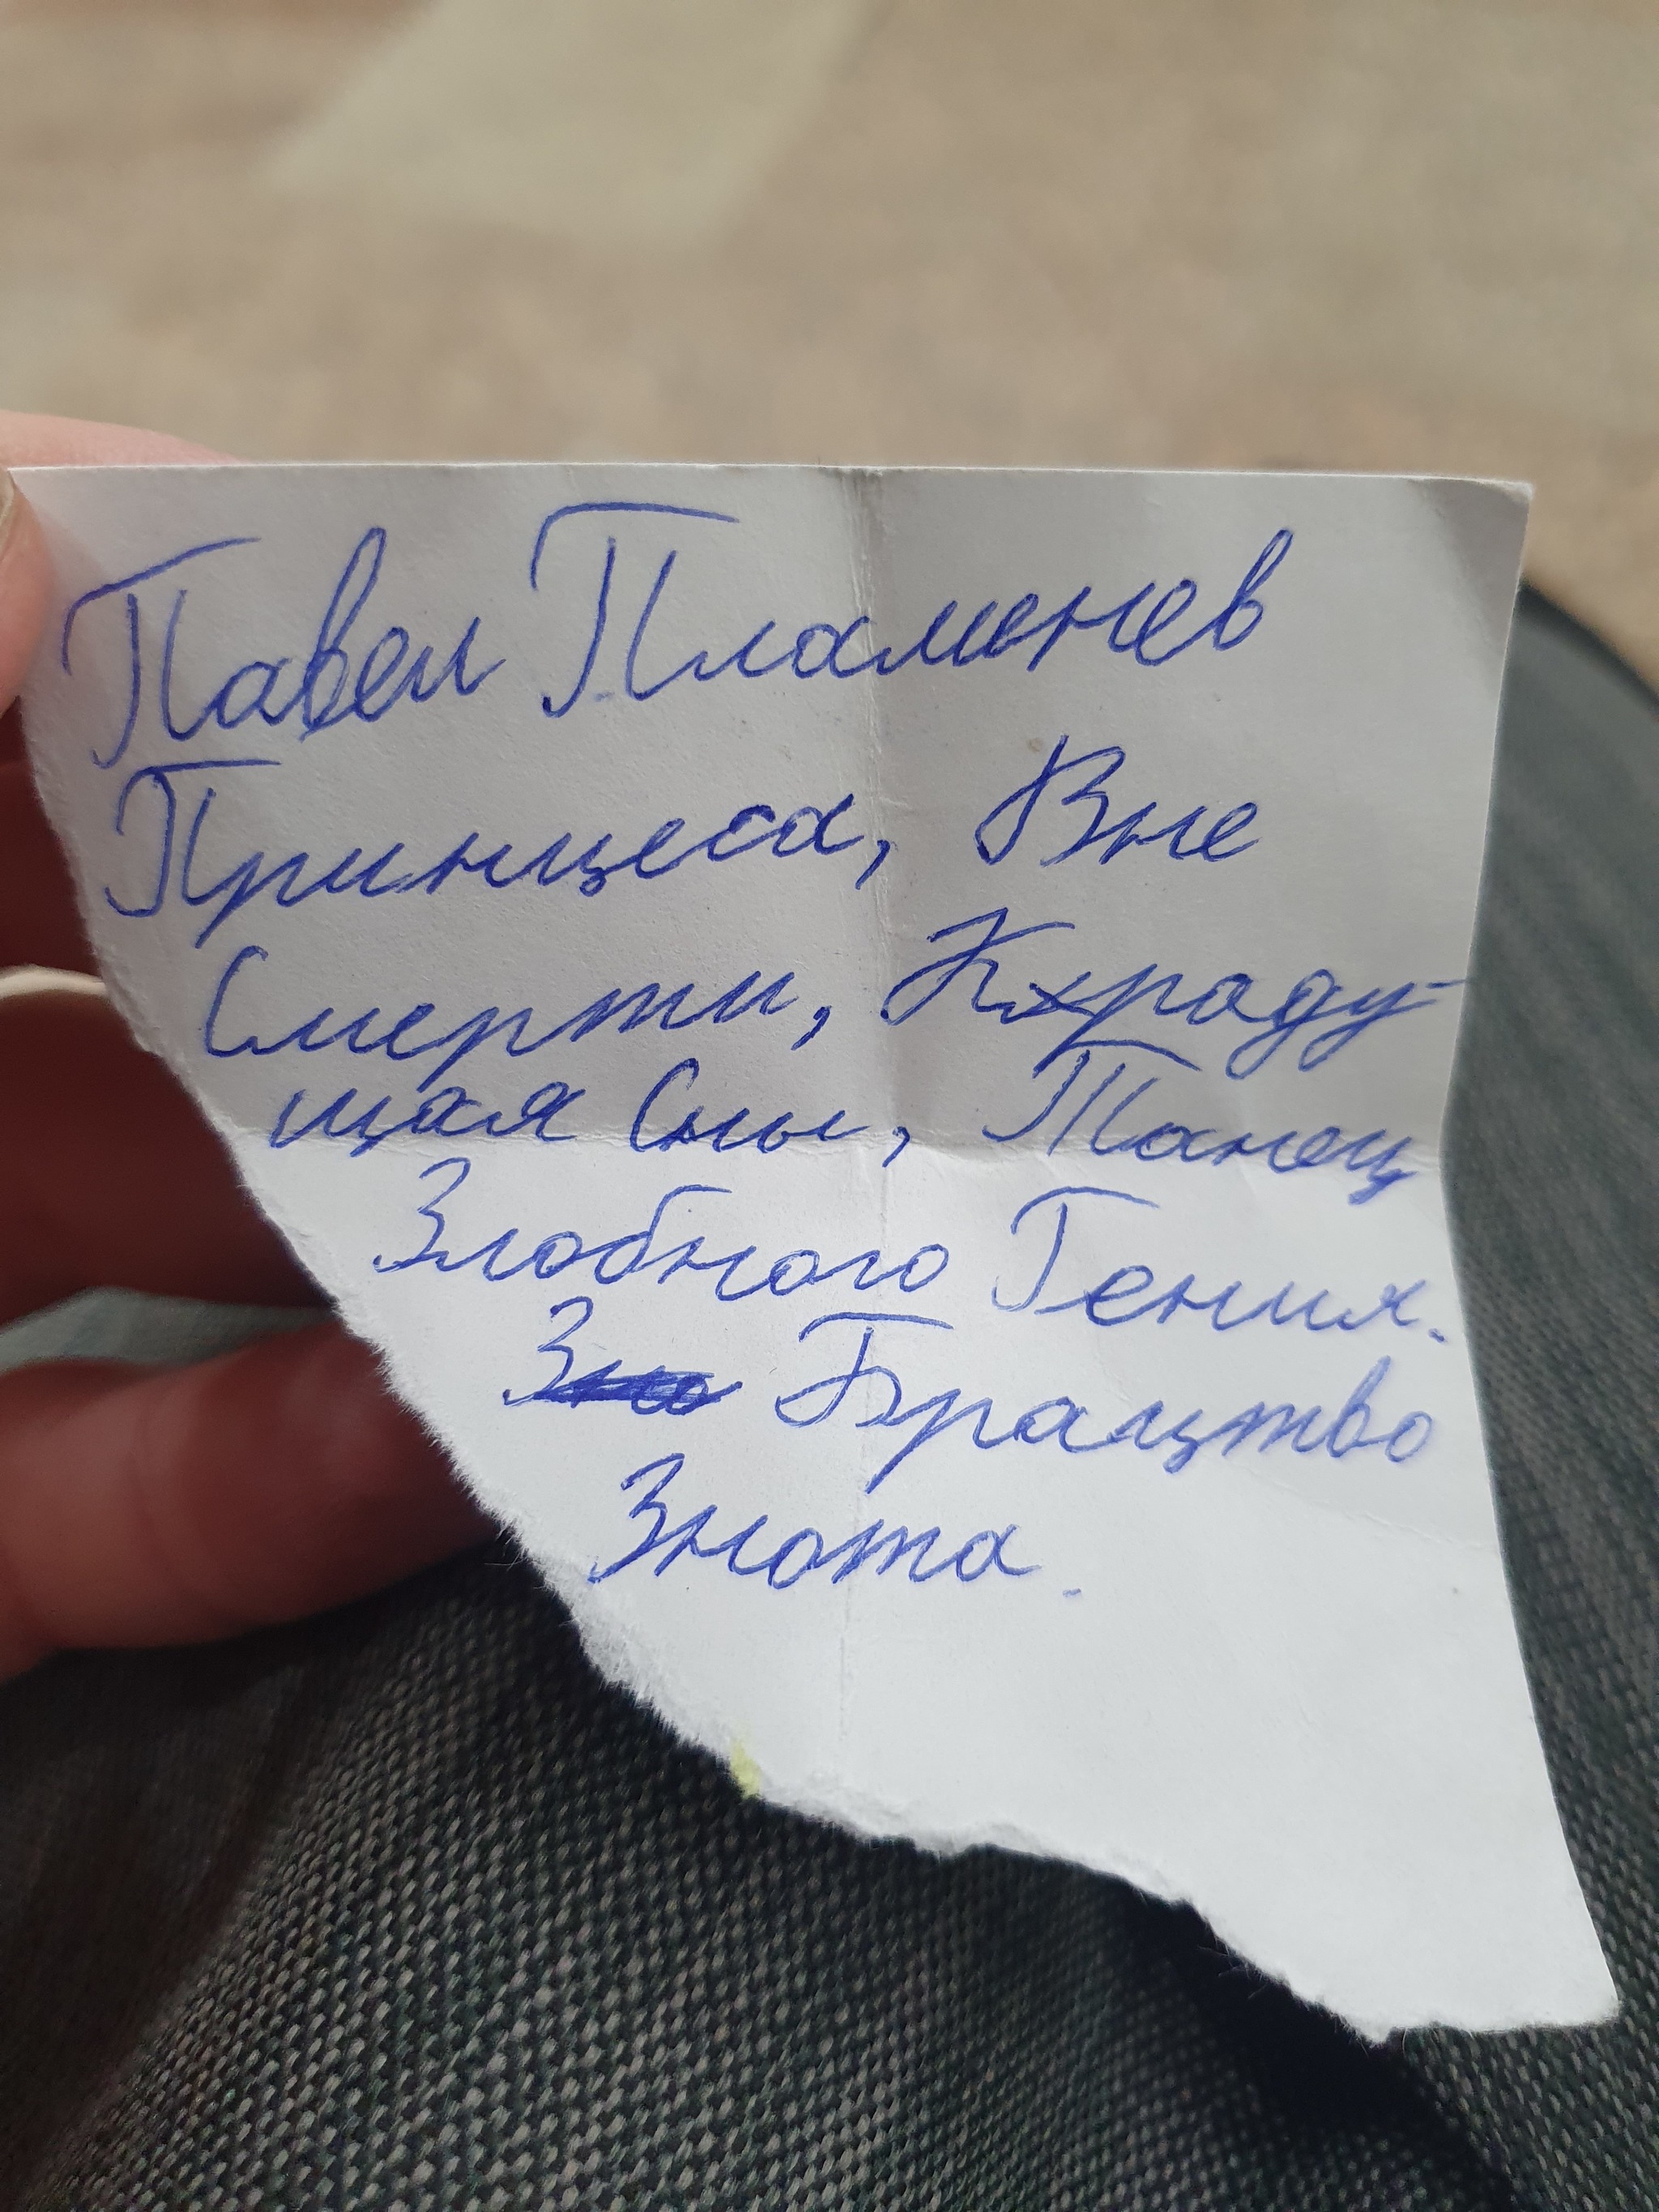 Павел Пламенев
Принцеса, Вне
Смерти, Краду-
щая Сны, Танец
Злобного Гения.
Брацтво
Знота.